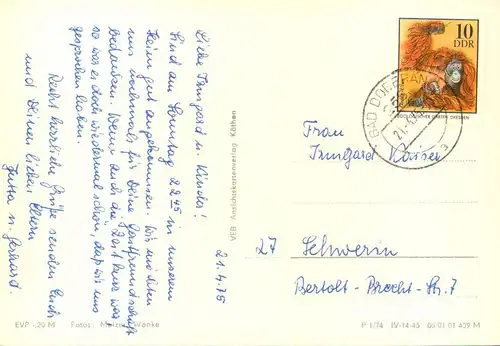 21.4.75
Liebe Irmgard u. Kinder!
Sind am Sonntag 22⁴⁵ in unserem
Heim gut angekommen. Wir möchten
uns nochmals für Deine Gastfreundschaft
bedanken. Wenn auch die Zeit kurz war,
so war es doch wiedermal schön, daß wir uns
gesprochen haben.
Recht herzliche Grüße senden Euch
und Deinen lieben Eltern
Jutta u. Gerhard.
VEB Ansichtskartenverlag Köthen
10
DDR
ZOOLOGISCHER GARTEN DRESDEN
BAD DOBERAN
Frau
Irmgard Kaiser
27 Schwerin
Bertolt-Brecht-Str. 7
EVP -,20 M Fotos: Wanke
P 1/74 IV-14-45 01 01 439 M